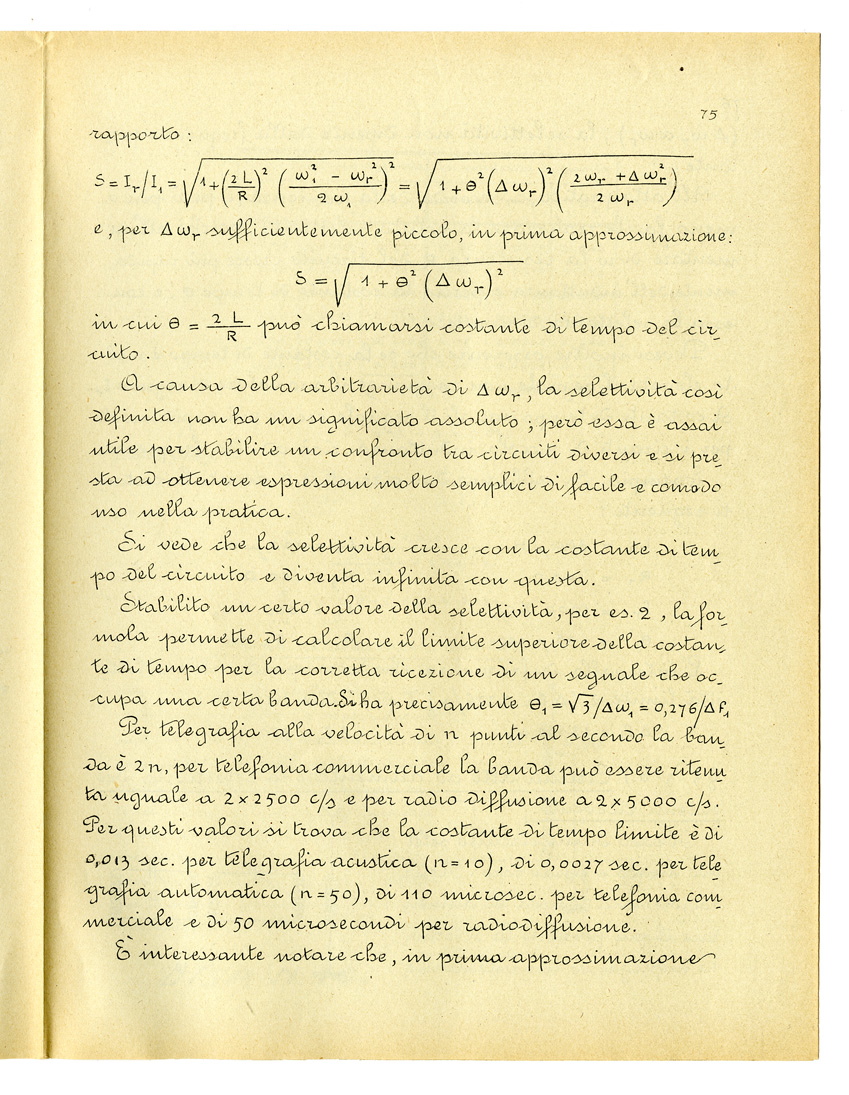 75
rapporto :
S = I_r / I_1 = √(1 + (2 L / R)² ((ω_1² − ω_r²) / 2 ω_1)²) = √(1 + θ² (Δ ω_r)² ((2 ω_r + Δ ω_r²) / 2 ω_r)²)
e , per Δ ω_r sufficientemente piccolo, in prima approssimazione:
S = √(1 + θ² (Δ ω_r)²)
in cui θ = 2 L / R può chiamarsi costante di tempo del cir_
cuito .
A causa della arbitrarietà di Δ ω_r , la selettività così
definita non ha un significato assoluto ; però essa è assai
utile per stabilire un confronto tra circuiti diversi e si pre_
sta ad ottenere espressioni molto semplici di facile e comodo
uso nella pratica.
Si vede che la selettività cresce con la costante di tem_
po del circuito e diventa infinita con questa.
Stabilito un certo valore della selettività, per es. 2 , la for_
mola permette di calcolare il limite superiore della costan_
te di tempo per la corretta ricezione di un segnale che oc_
cupa una certa banda. Si ha precisamente θ_1 = √3 / Δω_1 = 0,276 / Δ f_1
Per telegrafia alla velocità di n punti al secondo la ban_
da è 2 n, per telefonia commerciale la banda può essere ritenu_
ta uguale a 2 x 2500 c/s e per radio diffusione a 2 x 5000 c/s.
Per questi valori si trova che la costante di tempo limite è di
0,013 sec. per telegrafia acustica (n = 10) , di 0,0027 sec. per tele_
grafia automatica (n = 50), di 110 microsec. per telefonia com_
merciale e di 50 microsecondi per radiodiffusione.
È interessante notare che , in prima approssimazione